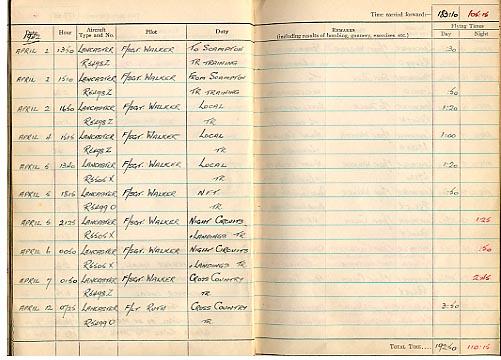 Time carried forward:— 183:10 106:15
Hour Aircraft Type and No. Pilot Duty REMARKS Flying Times
(including results of bombing, gunnery, exercises, etc.) Day Night
APRIL 2 1350 LANCASTER F/SGT. WALKER TO SCAMPTON :30
TR TRAINING
APRIL 2 1510 LANCASTER F/SGT WALKER FROM SCAMPTON
TR TRAINING :50
APRIL 2 1650 LANCASTER F/SGT. WALKER LOCAL 1:20
TR
APRIL 4 LANCASTER F/SGT. WALKER LOCAL 1:00
TR
APRIL 5 1340 LANCASTER F/SGT. WALKER LOCAL 1:20
R5505 X TR
APRIL 5 1815 LANCASTER F/SGT. WALKER N.F.T. :50
TR
APRIL 5 2125 LANCASTER F/SGT WALKER NIGHT CIRCUITS 1:25
R5505 X + LANDINGS TR
APRIL 6 0050 LANCASTER F/SGT. WALKER NIGHT CIRCUITS :50
R5505 X + LANDINGS TR
APRIL 7 0150 LANCASTER F/SGT. WALKER CROSS COUNTRY 2:45
TR
APRIL 12 LANCASTER F/LT RUTH CROSS COUNTRY 3:50
TR
TOTAL TIME.... 110:15